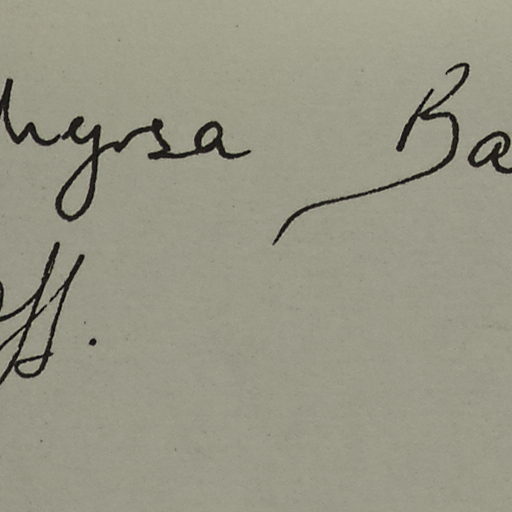 hyrsa Ba
ff.